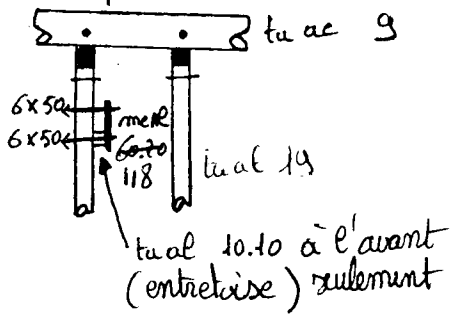 tu ac 9
6x50
6x50
meal
60.20
118
tu al 19
tu al 10.10 à l'avant
(entretoise) seulement